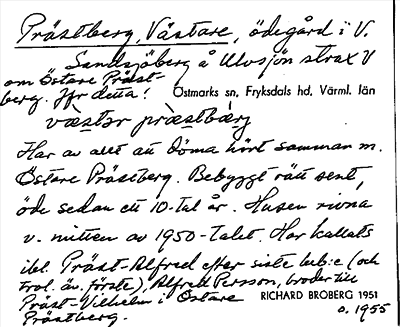 Prästberg, Västare, ödegård i V.
Sandsjöberg å Ulvsjön strax V
om Östare Präst-
berg. Jfr detta! Östmarks sn, Fryksdals hd, Värml. län
væstər præstbærj
Har av allt att döma hört samman m.
Östare Prästberg. Bebyggt rätt sent,
öde sedan ett 10-tal år. Husen rivna
v. mitten av 1950-talet. Har kallats
ibl. Präst-Alfred efter siste beb:e (och
trol. äv. förste), Alfred Persson, broder till
Präst-Vilhelm i Östare
Prästberg.
RICHARD BROBERG 1951
o. 1955